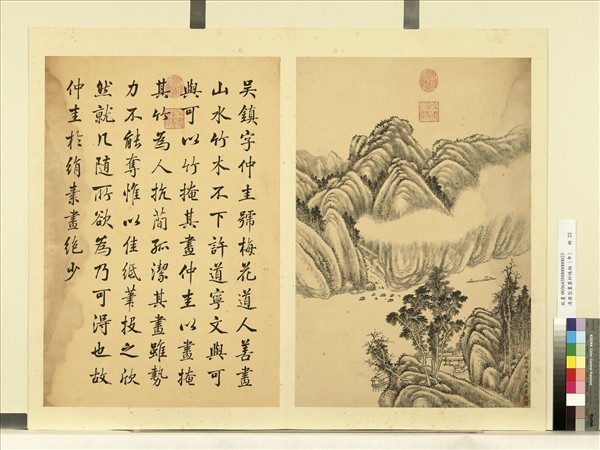 吳鎮字仲圭號梅花道人善畫
山水竹木不下許道寧文與可
與可以竹掩其畫仲圭以畫掩
其竹為人抗簡孤潔其畫雖勢
力不能奪惟以佳紙筆投之欣
然就几随所欲為乃可得也故
仲圭於絹素畫絕少